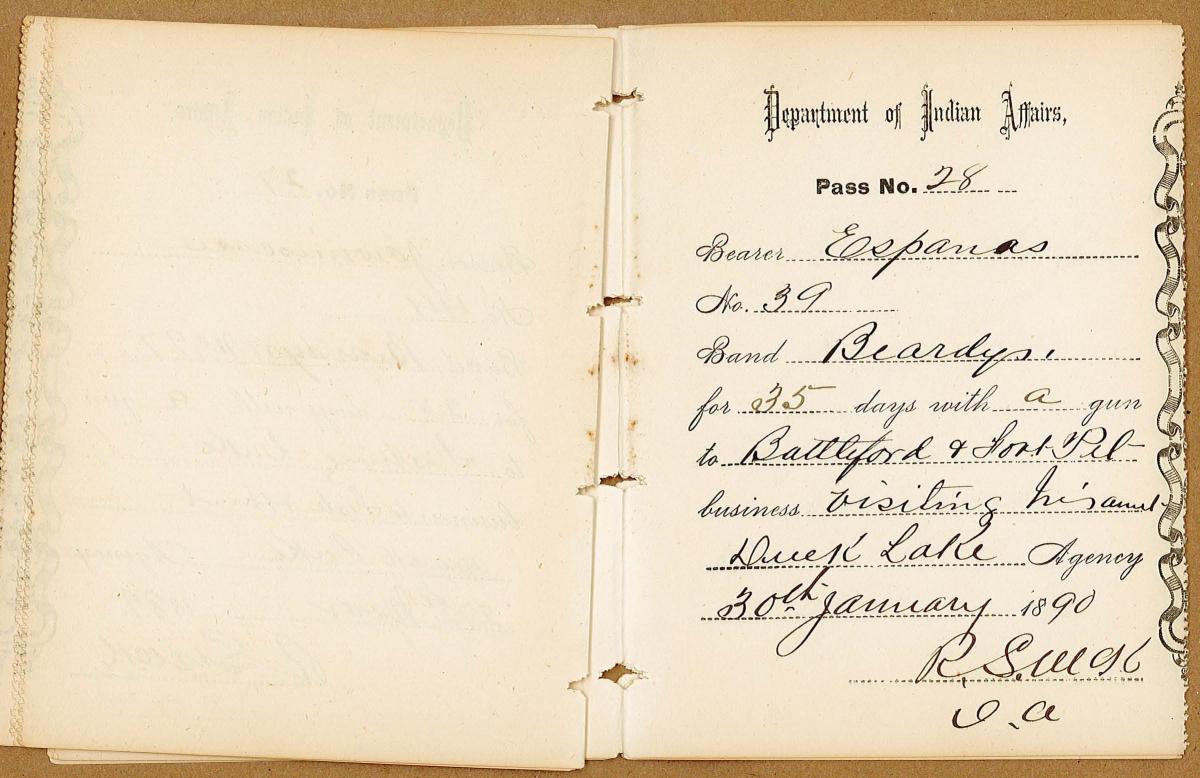 Department of Indian Affairs,
Pass No. 28
Bearer Espanas
No. 39
Band Beardys.
for 35 days with a gun
to Battleford & Fort Pit
business visiting his aunt
Duck Lake Agency
30th January 1890
R. S. McK
I. a